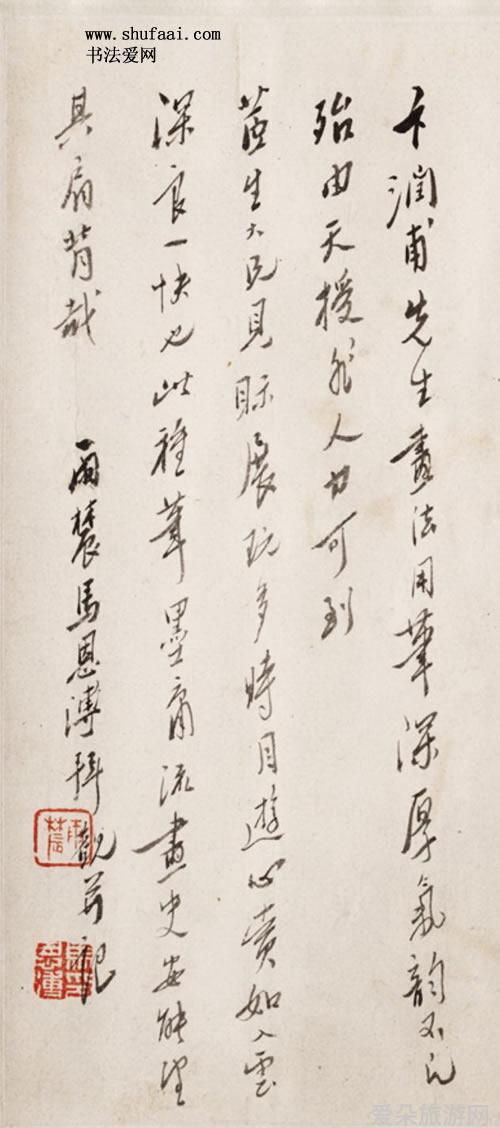 www.shufaai.com
书法爱网
卞潤甫先生畫法用筆深厚氣韵不凡
殆由天授非人力可到
蓝生大兄見眎展玩多時目遊心賞如入雲
深良一快也此種筆墨庸流畫史安能望
其肩背哉
雨農馬恩溥拜觀並記
雨農
爱朵旅游网